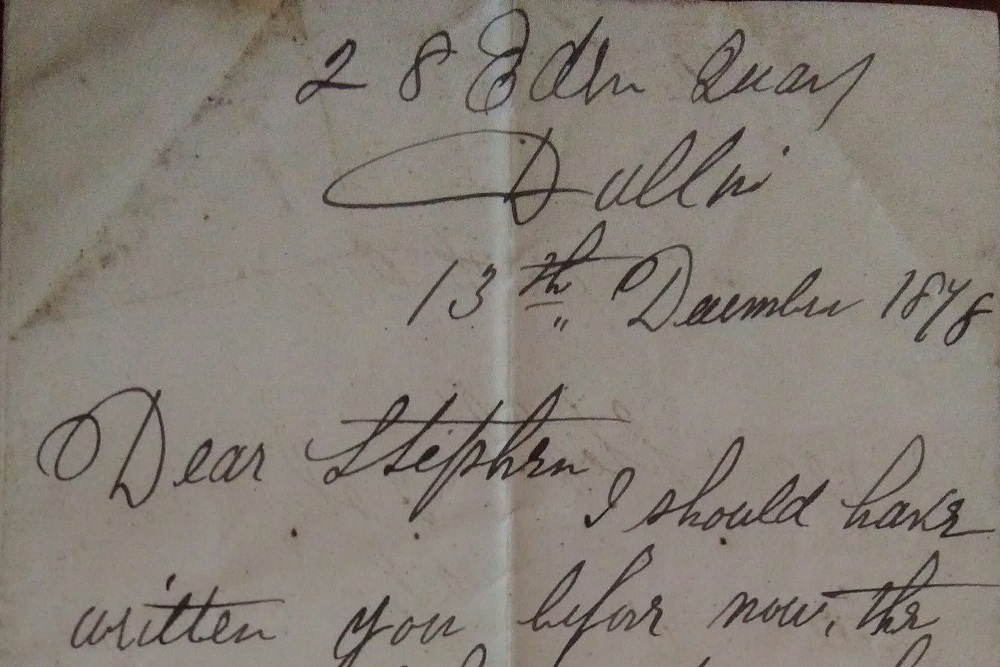 28 Eden Quay
Dublin
13th December 1878
Dear Stephen
I should have
written you before now, the